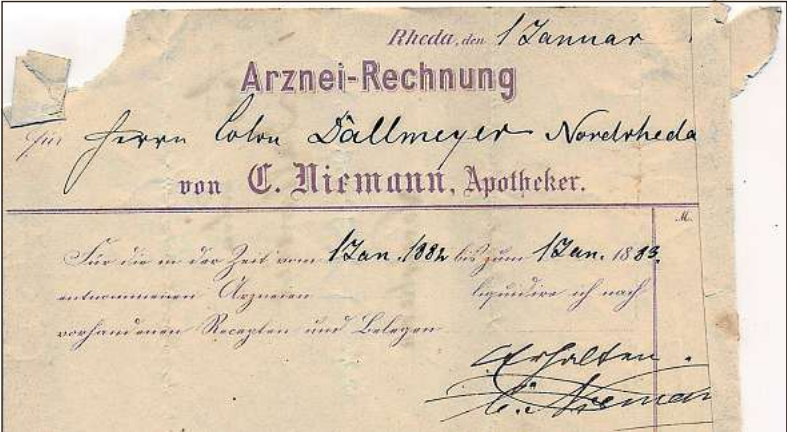 Rheda, den 1 Januar
Arznei-Rechnung
für Herrn Colon Dallmeyer Nordrheda
von C. Niemann, Apotheker.
M.
Für die in der Zeit vom 1 Jan. 1882 bis zum 1 Jan. 1883.
entnommenen Arzneien liquidire ich nach
vorhandenen Recepten und Belegen
Erhalten.
C. Niemann